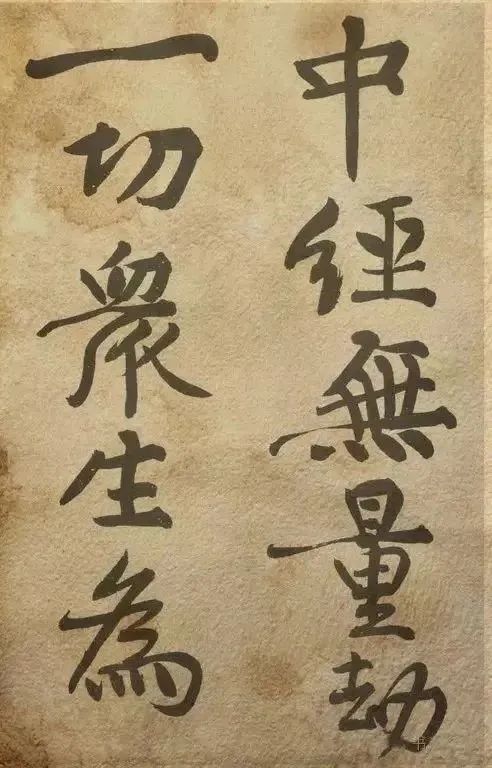 中經無量劫
一切衆生為